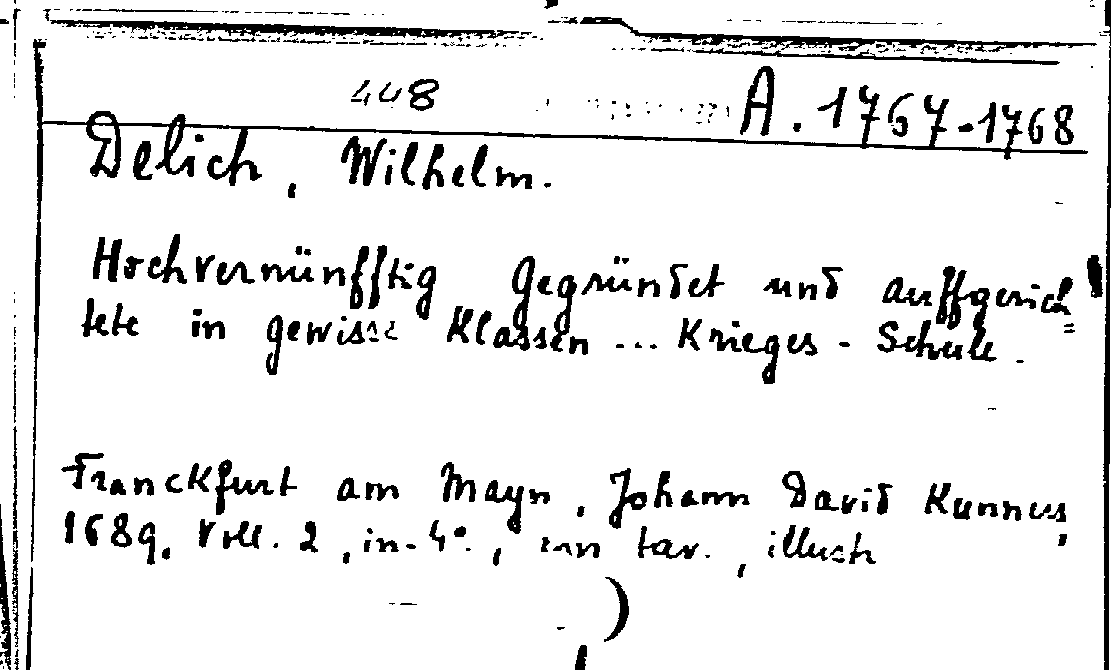 448 A. 1767-1768
Delich, Wilhelm.
Hochvernünfftig gegründet und auffgerich=
tete in gewisse Klassen ... Krieges - Schule.
Franckfurt am Mayn, Johann David Kunnus,
1689, Voll. 2, in-4°., con tav., illustr